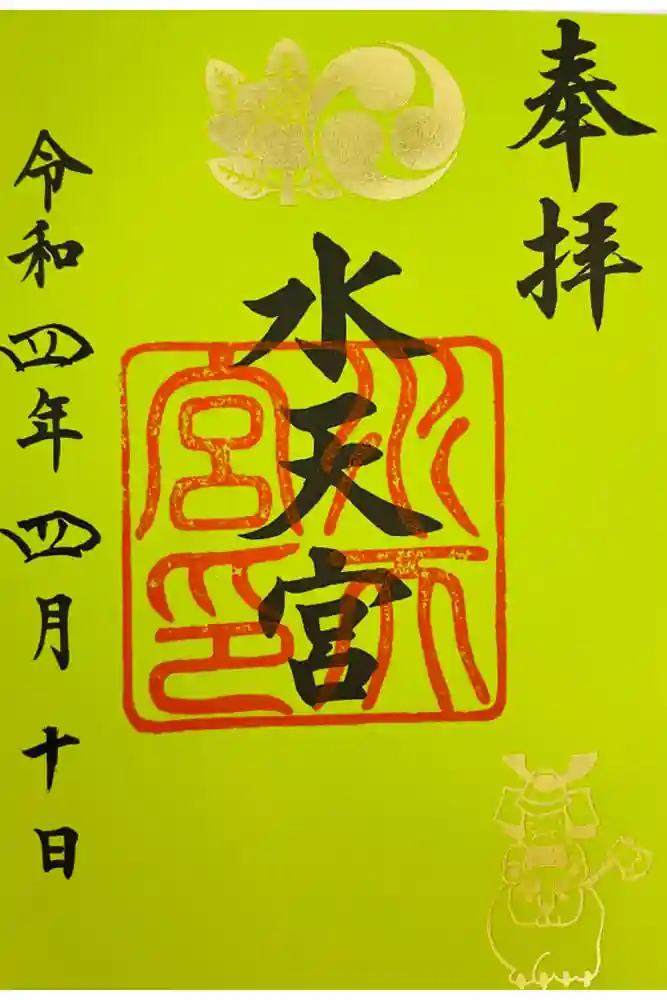 奉拝
水天宮
水天宮印
令和四年四月十日